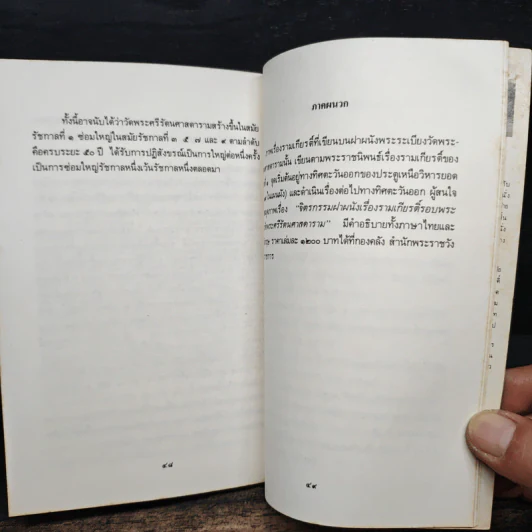 ทั้งนี้อาจนับได้ว่าวัดพระศรีรัตนศาสดารามสร้างขึ้นในสมัย
รัชกาลที่ ๑ ซ่อมใหญ่ในสมัยรัชกาลที่ ๓ ๕ ๗ และ ๙ ตามลำดับ
คือครบระยะ ๕๐ ปี ได้รับการปฏิสังขรณ์เป็นการใหญ่ต่อหนึ่งครั้ง
เป็นการซ่อมใหญ่รัชกาลหนึ่งเว้นรัชกาลหนึ่งตลอดมา
๔๘
ภาคผนวก
ภาพเรื่องรามเกียรติ์ที่เขียนบนฝาผนังพระระเบียงวัดพระ-
ศาสดารามนั้น เขียนตามพระราชนิพนธ์เรื่องรามเกียรติ์ของ
จุดเริ่มต้นอยู่ทางทิศตะวันออกของประตูเหนือวิหารยอด
และดำเนินเรื่องต่อไปทางทิศตะวันออก ผู้สนใจ
เรื่อง "จิตรกรรมฝาผนังเรื่องรามเกียรติ์รอบพระ
พระศรีรัตนศาสดาราม" มีคำอธิบายทั้งภาษาไทยและ
ราคาเล่มละ ๑๒๐๐ บาทได้ที่กองคลัง สำนักพระราชวัง
๔๙